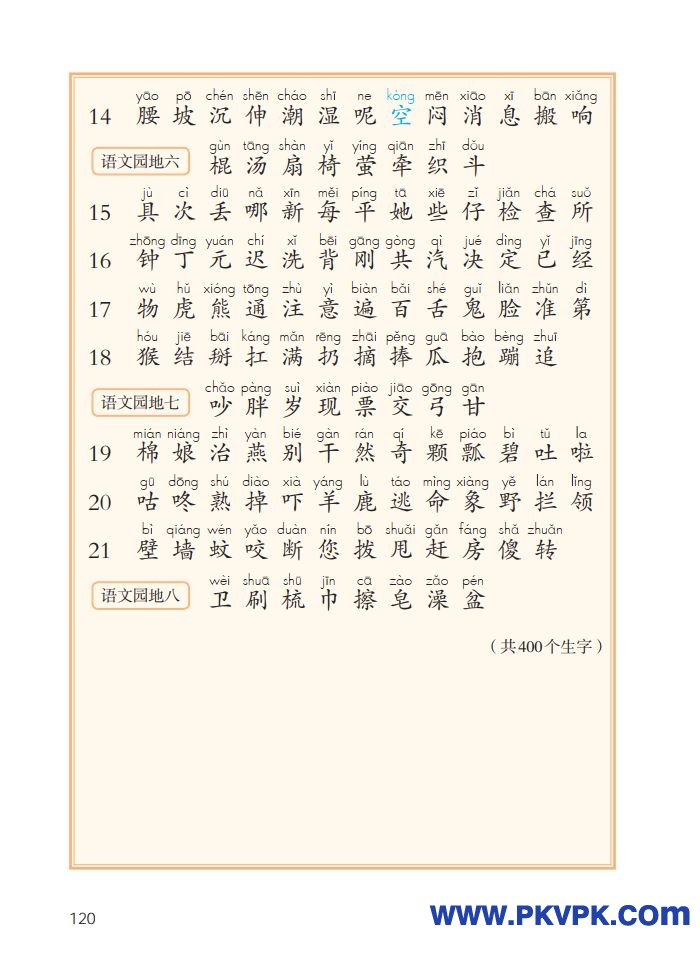 yāo pō chén shēn cháo shī ne kòng mēn xiāo xī bān xiǎng
14 腰 坡 沉 伸 潮 湿 呢 空 闷 消 息 搬 响
gùn tāng shàn yǐ yíng qiān zhī dǒu
语文园地六 棍 汤 扇 椅 萤 牵 织 斗
jù cì diū nǎ xīn měi píng tā xiē zǐ jiǎn chá suǒ
15 具 次 丢 哪 新 每 平 她 些 仔 检 查 所
zhōng dīng yuán chí xǐ bēi gāng gòng qì jué dìng yǐ jīng
16 钟 丁 元 迟 洗 背 刚 共 汽 决 定 已 经
wù hǔ xióng tōng zhù yì biàn bǎi shé guǐ liǎn zhǔn dì
17 物 虎 熊 通 注 意 遍 百 舌 鬼 脸 准 第
hóu jiē bāi káng mǎn rēng zhāi pěng guā bào bèng zhuī
18 猴 结 掰 扛 满 扔 摘 捧 瓜 抱 蹦 追
chǎo pàng suì xiàn piào jiāo gōng gān
语文园地七 吵 胖 岁 现 票 交 弓 甘
mián niáng zhì yàn bié gàn rán qí kē piáo bì tǔ la
19 棉 娘 治 燕 别 干 然 奇 颗 瓢 碧 吐 啦
gū dōng shú diào xià yáng lù táo mìng xiàng yě lán lǐng
20 咕 咚 熟 掉 吓 羊 鹿 逃 命 象 野 拦 领
bì qiáng wén yǎo duàn nín bō shuǎi gǎn fáng shǎ zhuǎn
21 壁 墙 蚊 咬 断 您 拨 甩 赶 房 傻 转
wèi shuā shū jīn cā zào zǎo pén
语文园地八 卫 刷 梳 巾 擦 皂 澡 盆
（共400个生字）
120
WWW.PKVPK.com